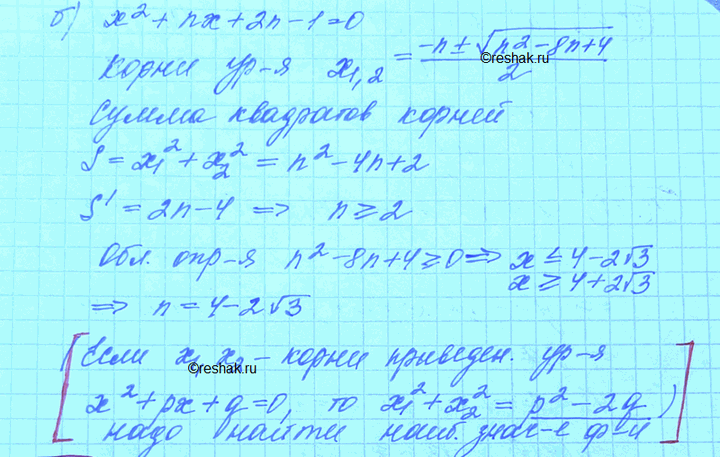 б) x² + nx + 2n - 1 = 0
корни ур-я x₁,₂ = (-n ± √(n² - 8n + 4)) / 2
©reshak.ru
Сумма квадратов корней
S = x₁² + x₂² = n² - 4n + 2
S' = 2n - 4 => n ≥ 2
Обл. опр-я n² - 8n + 4 ≥ 0 => x ≤ 4 - 2√3
x ≥ 4 + 2√3
=> n = 4 - 2√3
(Если x₁, x₂ - корни приведен. ур-я
©reshak.ru
x² + px + q = 0, то x₁² + x₂² = p² - 2q)
надо найти наиб. знач-е ф-и